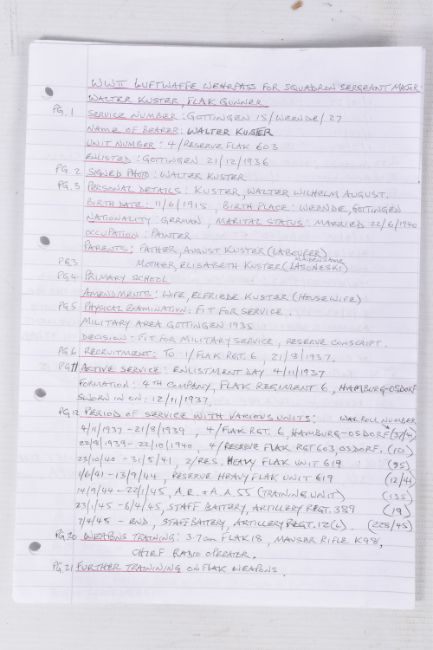 WWII LUFTWAFFE WEHRPASS FOR SQUADRON SERGEANT MAJOR
WALTER KUSTER, FLAK GUNNER
PG.1 SERVICE NUMBER: GOTTINGEN 15/WEENDE/27
NAME OF BEARER: WALTER KUSTER
UNIT NUMBER: 4/RESERVE FLAK 603
ENLISTED: GOTTINGEN 21/12/1936
PG.2 SIGNED PHOTO: WALTER KUSTER
PG.3 PERSONAL DETAILS: KUSTER, WALTER WILHELM AUGUST.
BIRTH DATE: 11/6/1915, BIRTH PLACE: WEENDE, GOTTINGEN
NATIONALITY: GERMAN, MARITAL STATUS: MARRIED 22/6/1940
OCCUPATION: PAINTER
PARENTS: FATHER, AUGUST KUSTER (LABOURER)
PG3 MOTHER, ELISABETH KUSTER (MAIDEN NAME)
PG4 PRIMARY SCHOOL
AMENDMENTS: WIFE, ELFRIEDE KUSTER (HOUSEWIFE)
PG5 PHYSICAL EXAMINATION: FIT FOR SERVICE.
MILITARY AREA GOTTINGEN 1935
DECISION: FIT FOR MILITARY SERVICE, RESERVE CONSCRIPT.
PG6 RECRUITMENT: TO 1/FLAK RGT. 6, 21/3/1937.
PG11 ACTIVE SERVICE: ENLISTMENT DAY 4/11/1937
FORMATION: 4TH COMPANY, FLAK REGIMENT 6, HAMBURG-OSDORF
SWORN IN ON: 12/11/1937.
PG.12 PERIOD OF SERVICE WITH VARIOUS UNITS: WAR ROLL NUMBER
4/11/1937-21/8/1939, 4/FLAK RGT. 6, HAMBURG-OSDORF (3/4)
22/8/1939-22/10/1940, 4/RESERVE FLAK RGT 603, OSDORF. (101)
23/10/40-31/5/41, 2/RES. HEAVY FLAK UNIT 619 (95)
1/6/41-13/9/44, RESERVE HEAVY FLAK UNIT 619 (12/4)
14/9/44-22/1/45, A.R.&A.A 55 (TRAINING UNIT) (135)
23/1/45-6/4/45, STAFF BATTERY, ARTILLERY REGT. 389 (19)
7/4/45-END, STAFF BATTERY, ARTILLERY REGT. (228/45)
PG.20 WEAPONS TRAINING: 3.7cm FLAK 18, MAUSER RIFLE K98,
CHIEF RADIO OPERATOR.
PG.21 FURTHER TRAINING ON FLAK WEAPONS.